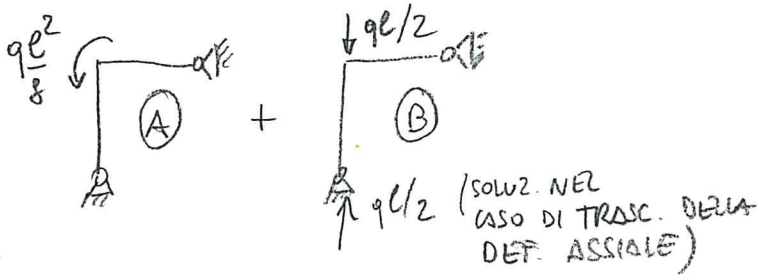 qℓ²/8
A
+
qℓ/2
B
qℓ/2
(SOLUZ. NEL
CASO DI TRASC. DELLA
DEF. ASSIALE)